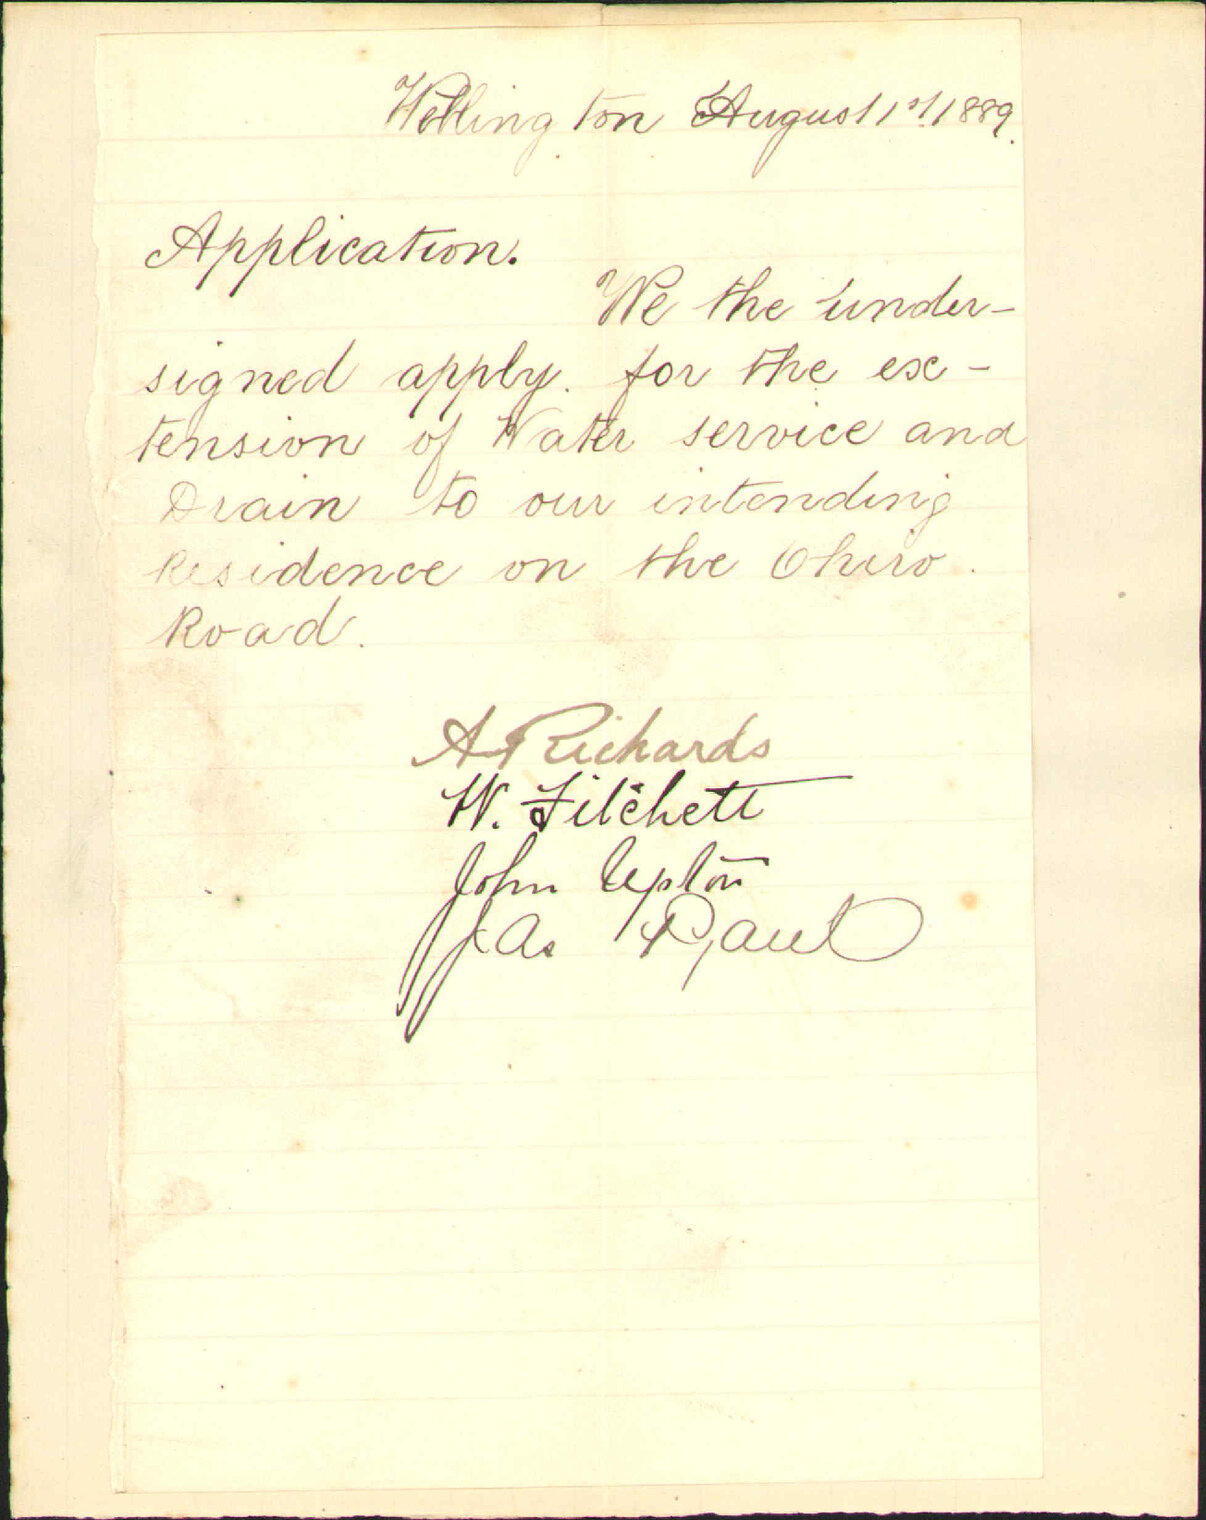 Wellington August 1st 1889.
Application.
We the under-
signed apply. for the ex-
tension of Water service and
Drain to our intending
Residence on the Ohiro.
Road.
A Richards
W. Fitchett
John Upton
Jas Paul